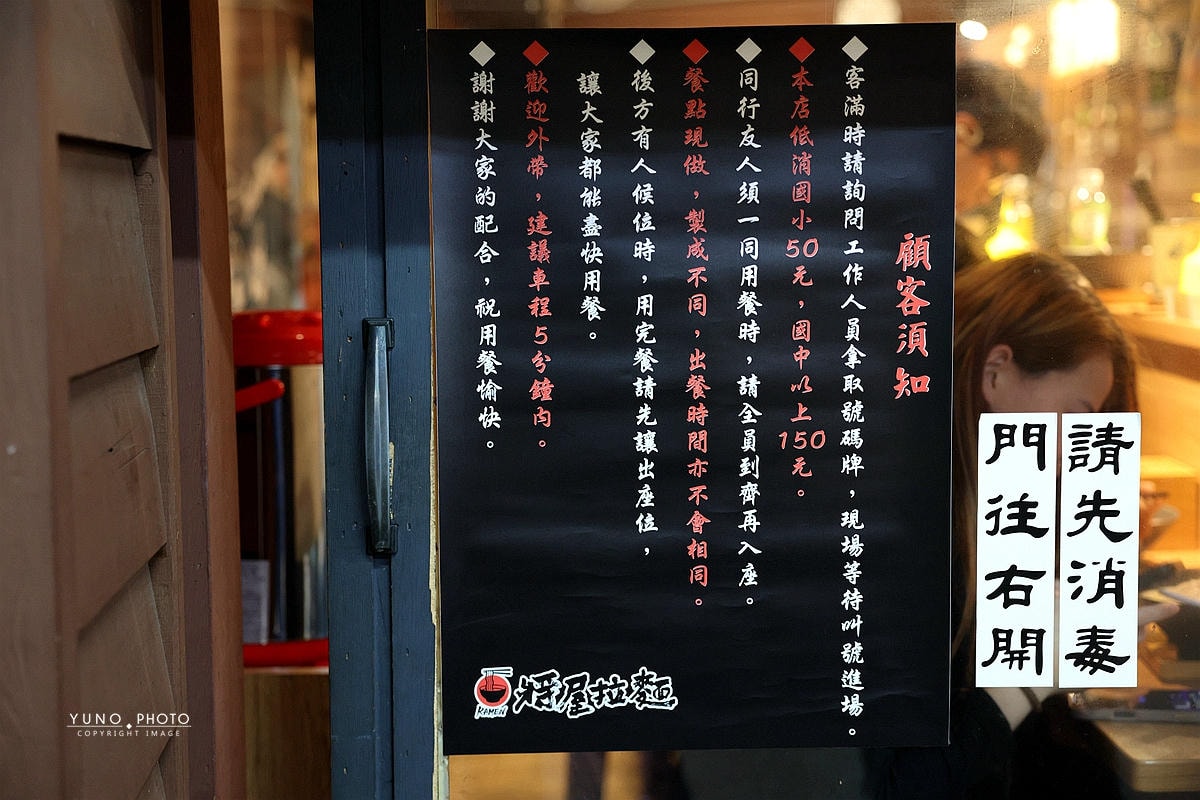 顧客須知
◆客滿時請詢問工作人員拿取號碼牌，現場等待叫號進場。
◆本店低消國小50元，國中以上150元。
◆同行友人須一同用餐時，請全員到齊再入座。
◆餐點現做，製成不同，出餐時間亦不會相同。
◆後方有人候位時，用完餐請先讓出座位，
讓大家都能盡快用餐。
◆歡迎外帶，建議車程5分鐘內。
◆謝謝大家的配合，祝用餐愉快。
RAMEN
屋拉麵
請先消毒
門往右開
YUNO PHOTO
COPYRIGHT IMAGE